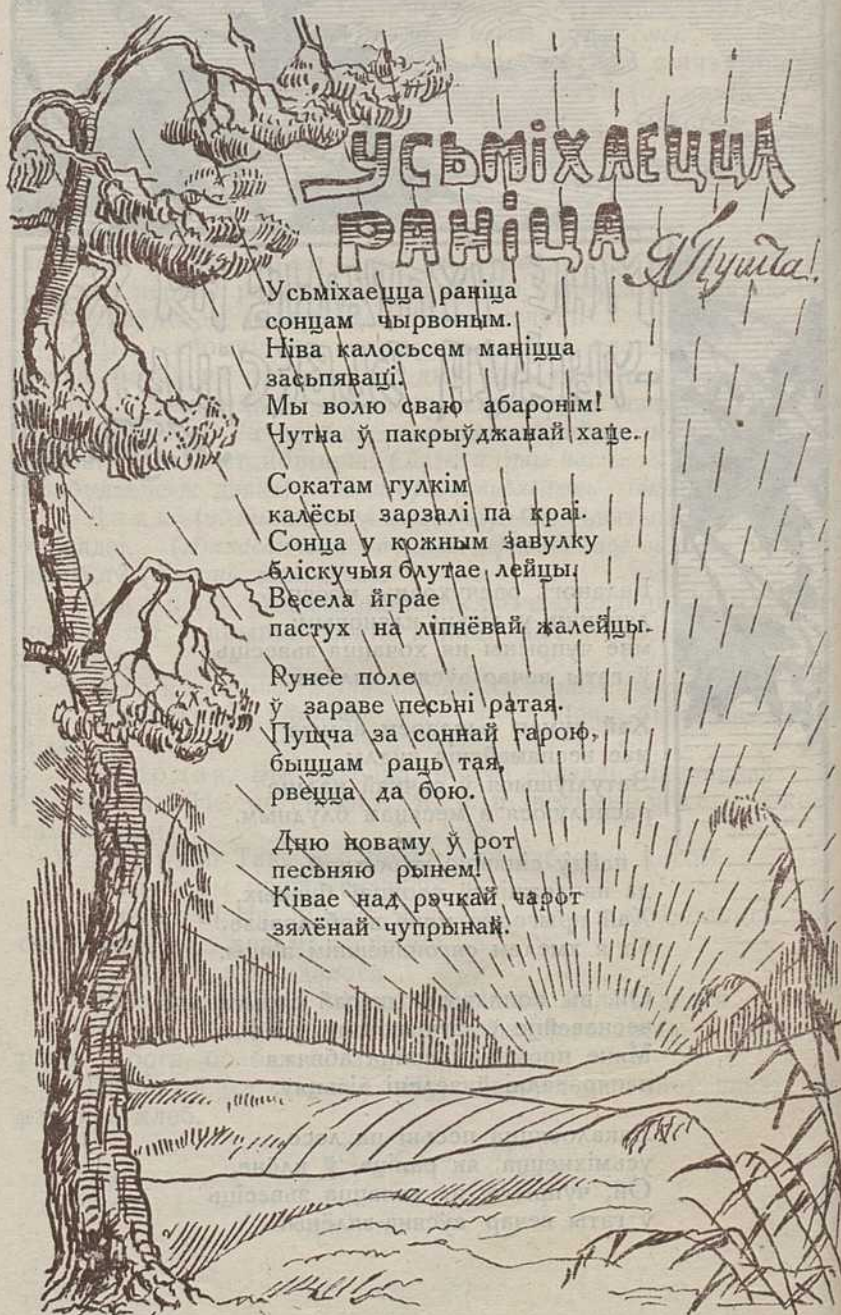 УСЬМІХАЕЦЦА
РАНІЦА
Я Пушча!
Усьміхаецца раніца
сонцам чырвоным.
Ніва калосьсем маніцца
засьпяваці.
Мы волю сваю абаронім!
Чутна ў пакрыўджанай хаце.
Сокатам гулкім
калёсы зарзалі па краі.
Сонца у кожным завулку
бліскучыя блутае лейцы.
Весела йграе
пастух на ліпнёвай жалейцы.
Рунее поле
ў зараве песьні ратая.
Пушча за соннай гарою,
быццам раць тая,
рвецца да бою.
Дню новаму ў рот
песьняю рынем!
Ківае над рэчкай чарот
зялёнай чупрынай.